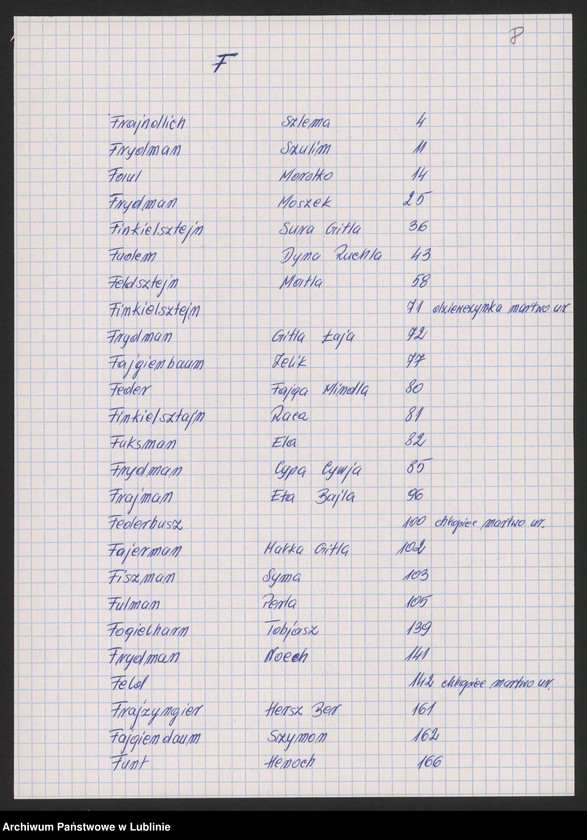 8
F
Frajndlich Szlema 4
Frydman Szulim 11
Faul Mordko 14
Frydman Moszek 25
Finkielsztejn Sura Gitla 36
Fudem Dyna Ruchla 43
Feldsztejn Majtla 58
Finkielsztejn 71 dziewczynka martwo ur
Frydman Gitla Łaja 72
Fajgienbaum Zelik 77
Feder Fajga Mindla 80
Finkielsztajn Raca 81
Fuksman Ela 82
Frydman Cypa Cywja 85
Frajman Eta Bajla 96
Federbusz 100 chłopiec martwo ur.
Fajerman Makka Gitla 102
Fiszman Syma 103
Fulman Perla 105
Fogielharn Tobjasz 139
Frydman Noech 141
Feld 142 chłopiec martwo ur.
Frajzyngier Hersz Ber 161
Fajgiendaum Szymon 162
Funt Henoch 166
Archiwum Państwowe w Lublinie